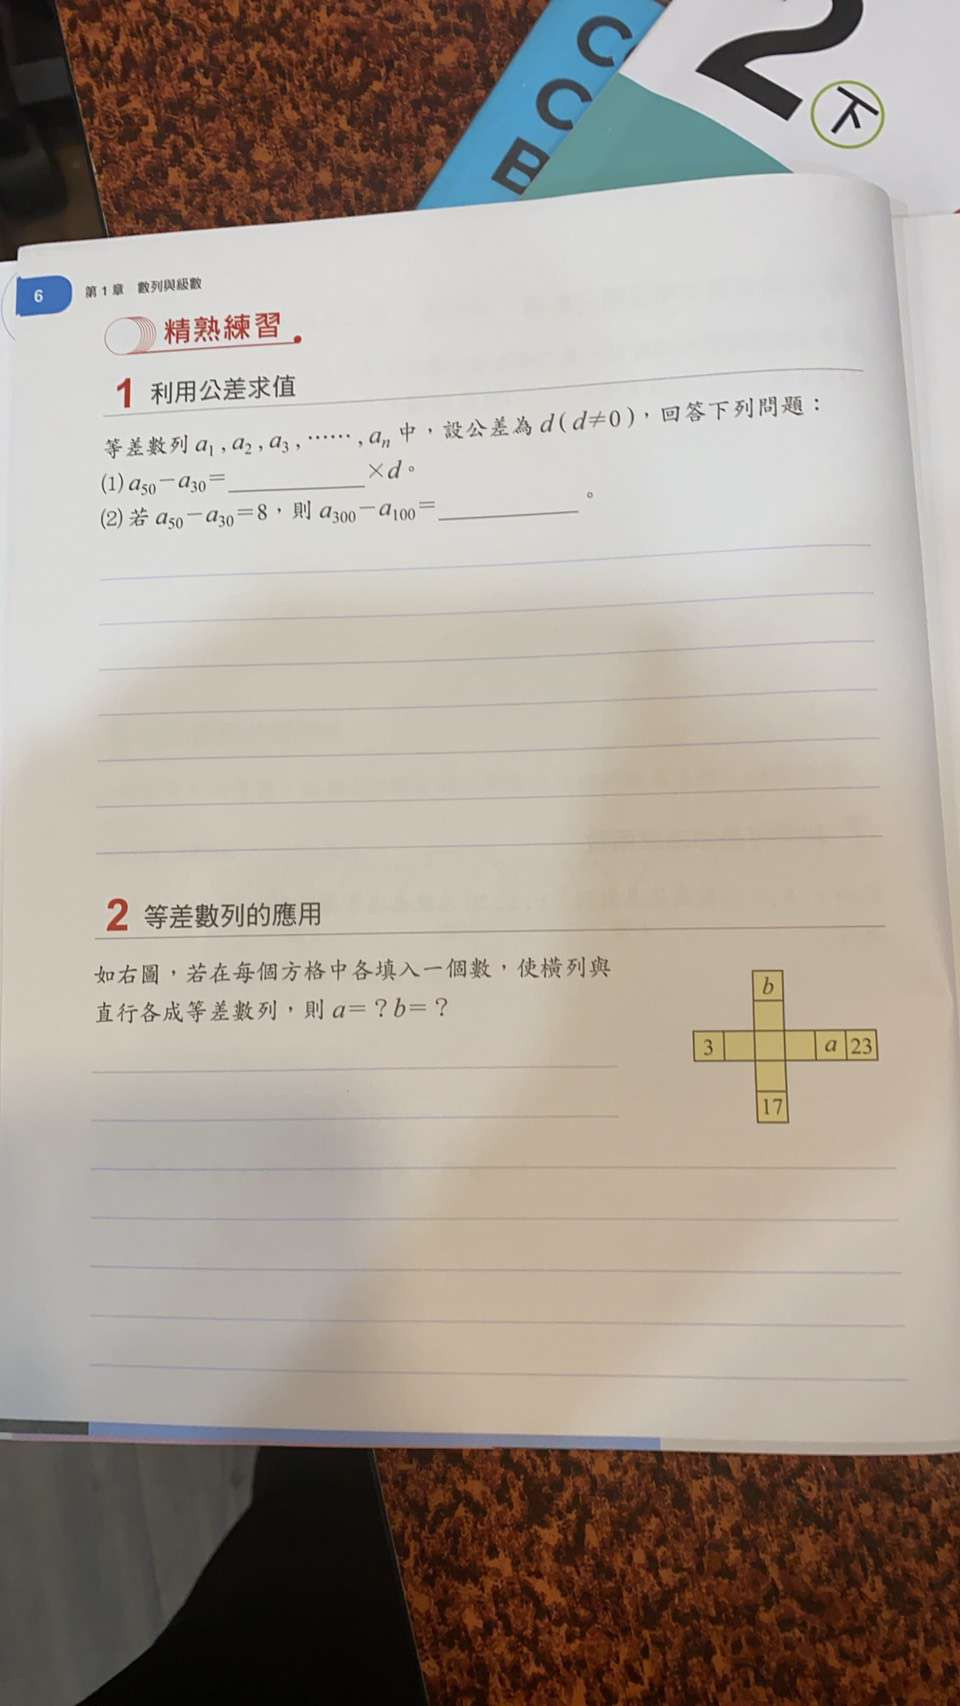 C
C
B
2
下
6
第1章 數列與級數
精熟練習
1 利用公差求值
等差數列 a₁ , a₂ , a₃ , …… , aₙ 中，設公差為 d ( d≠0 )，回答下列問題：
(1) a₅₀－a₃₀＝__________×d。
(2) 若 a₅₀－a₃₀＝8，則 a₃₀₀－a₁₀₀＝__________。
2 等差數列的應用
如右圖，若在每個方格中各填入一個數，使橫列與
直行各成等差數列，則 a＝？b＝？
b
3 a 23
17